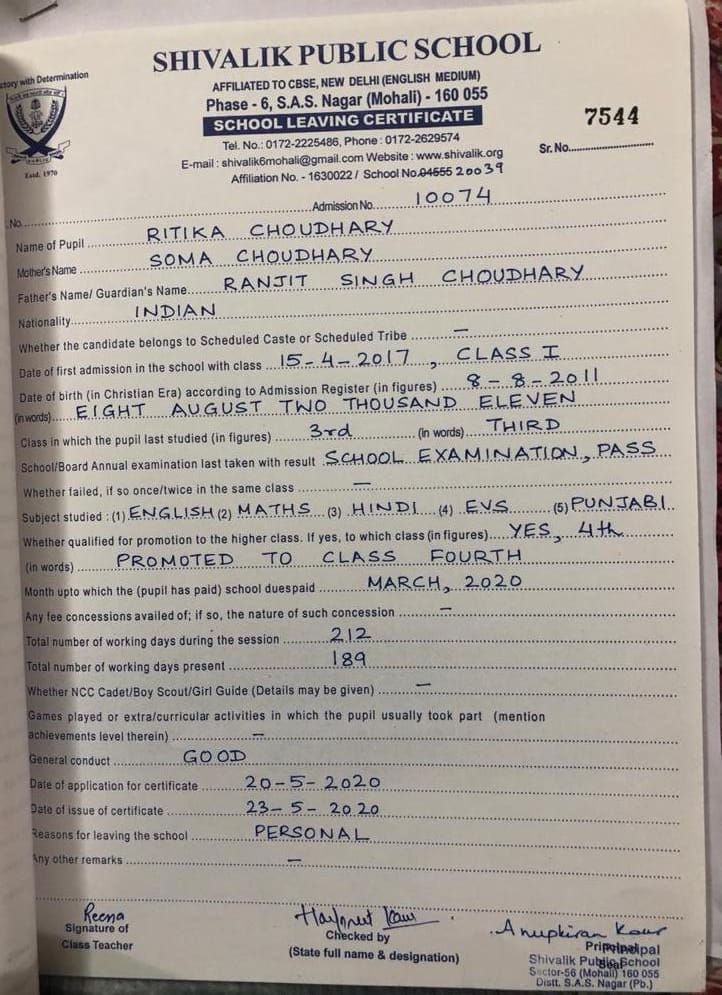 ctory with Determination
SHIVALIK PUBLIC SCHOOL
AFFILIATED TO CBSE, NEW DELHI (ENGLISH MEDIUM)
Phase - 6, S.A.S. Nagar (Mohali) - 160 055
SCHOOL LEAVING CERTIFICATE
7544
Estd. 1970
Tel. No.: 0172-2225486, Phone : 0172-2629574
Sr. No.
E-mail : shivalik6mohali@gmail.com Website : www.shivalik.org
Affiliation No. - 1630022 / School No.04555 20039
No. Admission No. 10074
Name of Pupil RITIKA CHOUDHARY
Mother's Name SOMA CHOUDHARY
Father's Name/ Guardian's Name RANJIT SINGH CHOUDHARY
Nationality INDIAN
Whether the candidate belongs to Scheduled Caste or Scheduled Tribe —
Date of first admission in the school with class 15-4-2017, CLASS I
Date of birth (in Christian Era) according to Admission Register (in figures) 8-8-2011
(in words) EIGHT AUGUST TWO THOUSAND ELEVEN
Class in which the pupil last studied (in figures) 3rd (in words) THIRD
School/Board Annual examination last taken with result SCHOOL EXAMINATION, PASS
Whether failed, if so once/twice in the same class —
Subject studied : (1) ENGLISH (2) MATHS (3) HINDI (4) EVS (5) PUNJABI
Whether qualified for promotion to the higher class. If yes, to which class (in figures) YES, 4th
(in words) PROMOTED TO CLASS FOURTH
Month upto which the (pupil has paid) school duespaid MARCH, 2020
Any fee concessions availed of; if so, the nature of such concession —
Total number of working days during the session 212
Total number of working days present 189
Whether NCC Cadet/Boy Scout/Girl Guide (Details may be given) —
Games played or extra/curricular activities in which the pupil usually took part (mention
achievements level therein) —
General conduct GOOD
Date of application for certificate 20-5-2020
Date of issue of certificate 23-5-2020
Reasons for leaving the school PERSONAL
Any other remarks —
Reena
Signature of
Class Teacher
Harpreet Kaur
Checked by
(State full name & designation)
Anupkiran Kaur
Principal
Principal
Seal
Shivalik Public School
Sector-56 (Mohali) 160 055
Distt. S.A.S. Nagar (Pb.)